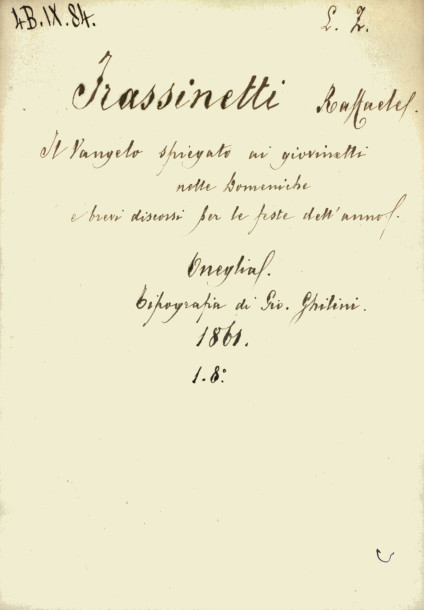 4B.IX.84. L. Z.
Frassinetti Raffaele.
Il Vangelo spiegato ai giovinetti
nelle Domeniche
e brevi discorsi per le feste dell'anno.
Oneglia.
Tipografia di Gio. Ghilini.
1861.
1. 8.º